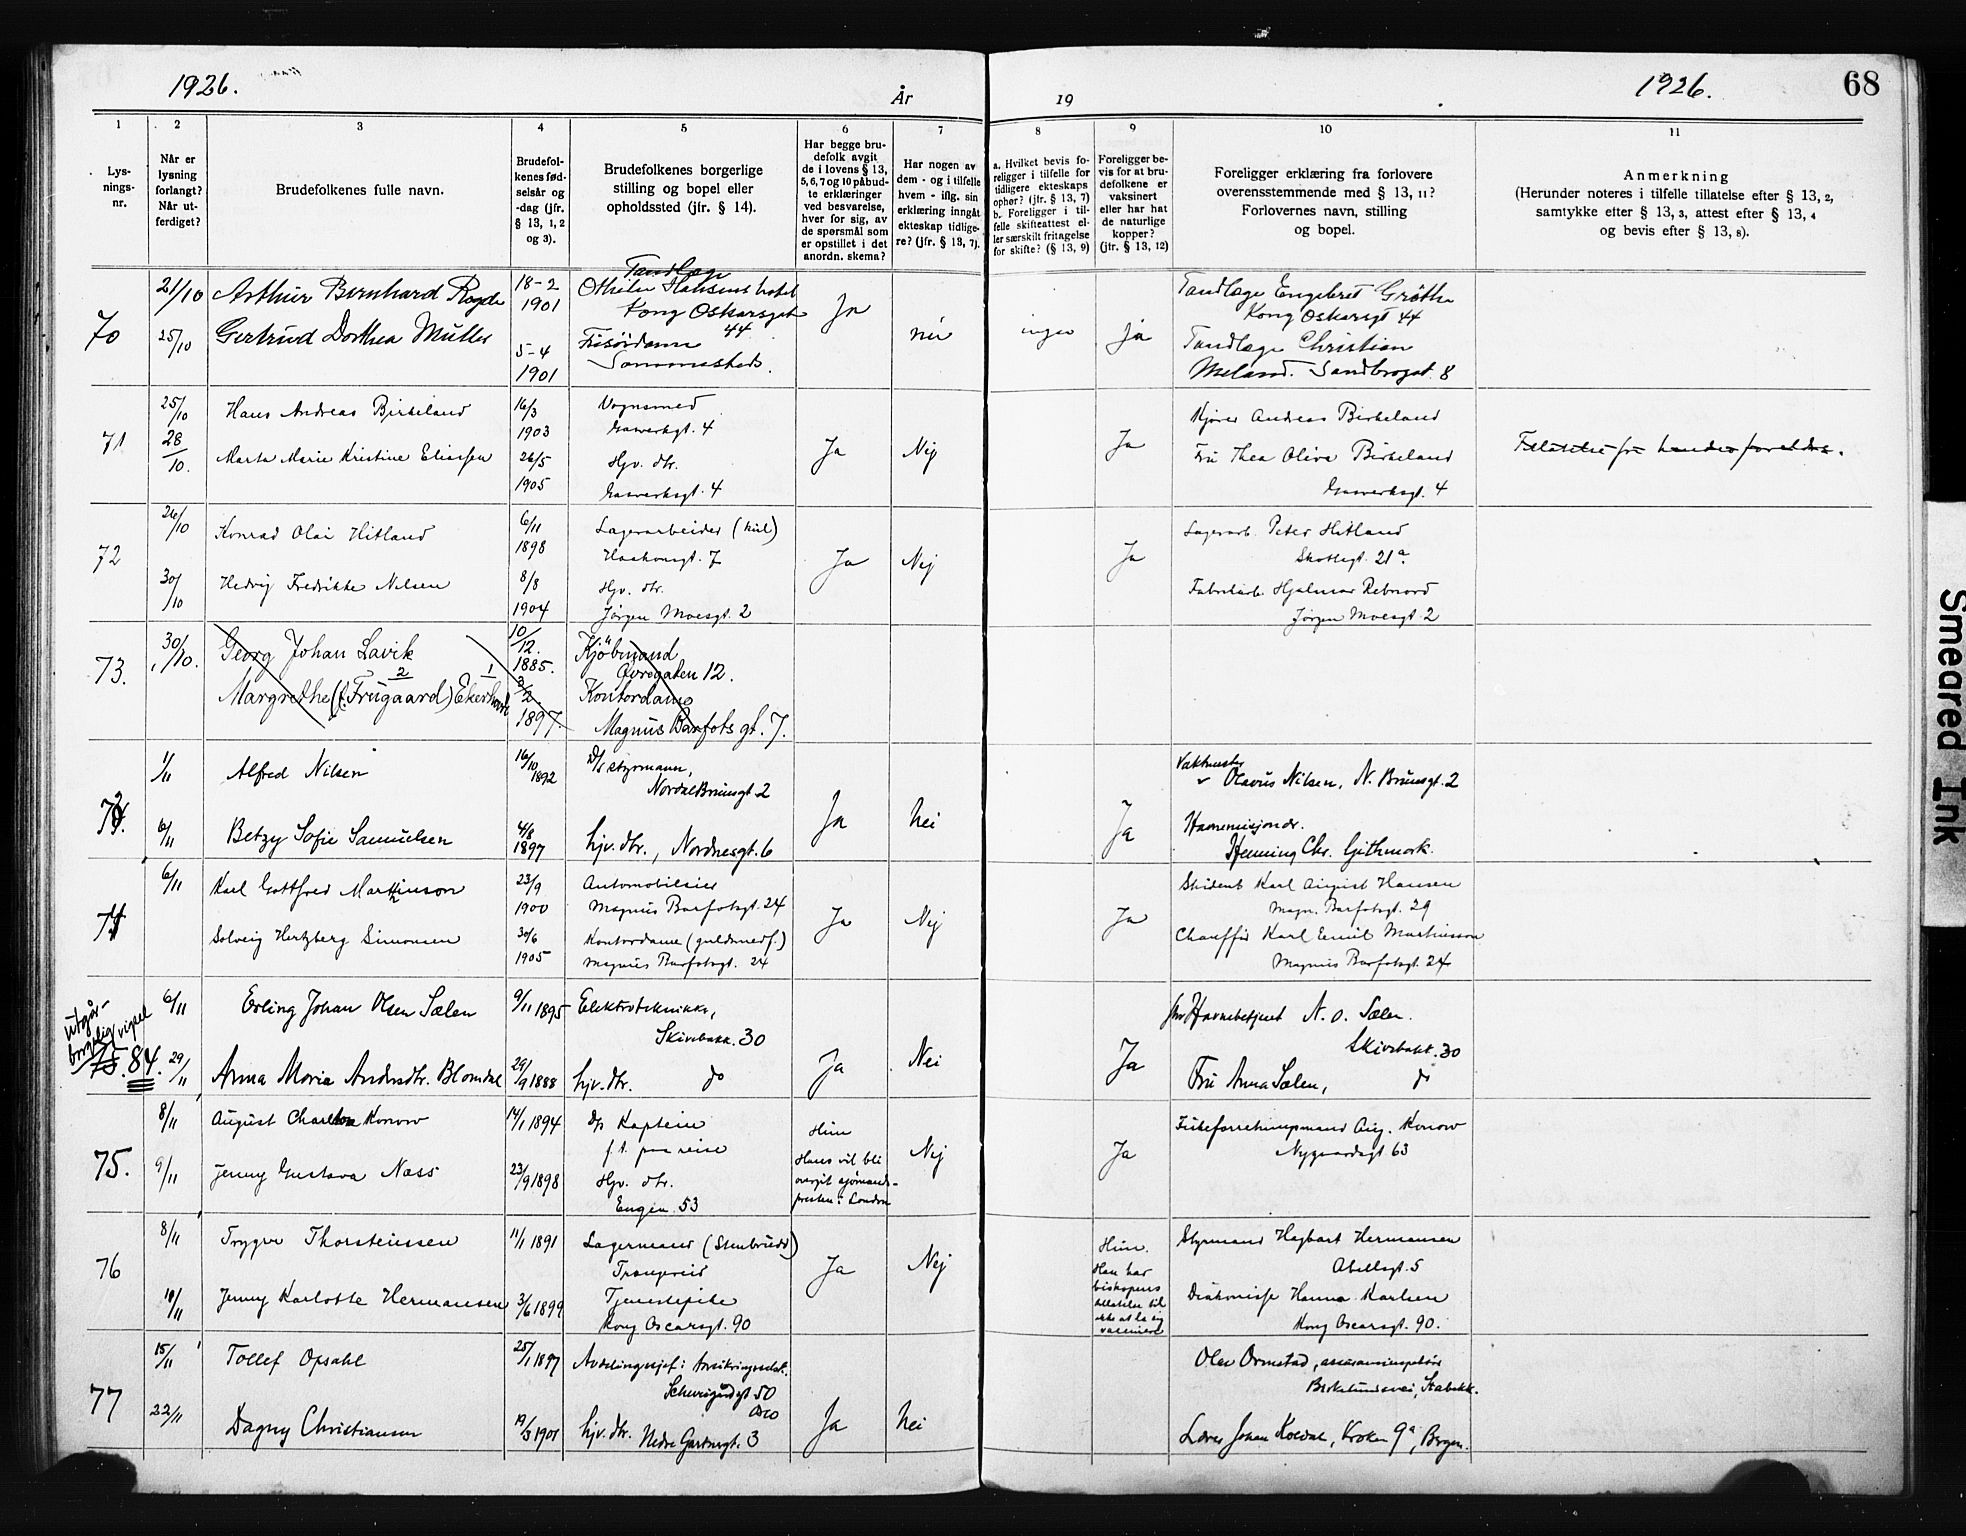 1926.
År
19
1926.
68
1
2
3
4
5
6
7
8
9
10
11
Lys-
nings-
nr.
Når er
lysning
forlangt?
Når ut-
ferdiget?
Brudefolkenes fulle navn.
Brudefol-
kenes fød-
selsår og
-dag (jfr.
§ 13, 1, 2
og 3).
Brudefolkenes borgerlige
stilling og bopel eller
opholdssted (jfr. § 14).
Har begge bru-
defolk avgit
de i lovens § 13,
5, 6, 7 og 10 påbud-
te erklæringer
ved besvarelse,
hver for sig, av
de spørsmål som
er opstillet i det
anordn. skema?
Har nogen av
dem - og i tilfelle
hvem - iflg. sin
erklæring inngått
ekteskap tidlige-
re? (jfr. § 13, 7).
a. Hvilket bevis fo-
religger i tilfelle for
tidligere ekteskaps
ophør? (jfr. § 13, 7)
b. Foreligger i til-
felle skifteattest el-
ler særskilt fritagelse
for skifte? (§ 13, 9)
Foreligger be-
vis for at bru-
defolkene er
vaksinert
eller har hat
de naturlige
kopper?
(jfr. § 13, 12)
Foreligger erklæring fra forlovere
overensstemmende med § 13, 11?
Forlovernes navn, stilling
og bopel.
Anmerkning
(Herunder noteres i tilfelle tillatelse efter § 13, 2,
samtykke efter § 13, 3, attest efter § 13, 4
og bevis efter § 13, 8).
70
21/10
25/10
Arthur Bernhard Rogde
Gertrud Dorthea Müller
18-2
1901
5-4
1901
Tandlæge
Kong Oskarsgate
44
Frisørdame
Ja
nei
ingen
ja
Tandlæge Engebret Grøthe
Kong Oskarsgt 44
Tandlæge Christian
Meland. Sandbrogt. 8
71
25/10
28/10.
Hans Andreas Birkeland
Marta Marie Kristine Eliassen
16/3
1903
26/5
1905
Vognsmed
Gasverksgt. 4
Hjv. dtr.
Gasverksgt. 4
Ja
Nej
Ja
Kjører Andreas Birkeland
Fru Thea Olive Birkeland
Gasverksgt. 4
72
26/10
30/10
Konrad Olai Hitland
Hedvig Fredrikke Nilsen
6/11
1898
8/8
1904
Lagerarbeider (kul)
Haakonsgt. 7
Hjv. dtr.
Jørgen Moesgt. 2
Ja
Nej
Ja
Lagerarb. Peter Hitland
Skottegt. 21a.
Fabrikarb. Hjalmar Rebnord
Jørgen Moesgt. 2
73.
30/10.
Georg Johan Lavik
2 1
Margrethe (f. Frugaard) Ekerhovd
10/12.
1885.
3/2.
1897.
Kjøbmand
Øvregaten 12.
Kontordame
Magnus Barfots gt. 7.
73.
1/11
6/11
Alfred Nilsen
Betzy Sofie Samuelsen
16/10
1892
4/8
1897
D/s styrmann,
Nordal Brunsgt 2
hjv. dtr., Nordnesgt. 6
Ja
Nei
Ja
Vaktmester
Olavus Nilsen, N. Brunsgt. 2
Henning Chr. Githmark.
74
6/11
Karl Gottfred Martinson
Solveig Hertzberg Simonsen
23/9
1900
30/6
1905
Automobileier
Magnus Barfotsgt. 24
Kontordame (guldsmedf.)
Magnus Barfotsgt. 24
Ja
Nej
Ja
Student Karl August Hansen
Magn. Barfotsgt. 29
Chauffør Karl Emil Martinsson
Magnus Barfotsgt. 24
utgår-
borgerlig vigsel
75. 84.
6/11
29/11
Erling Johan Olsen Sælen
Anna Maria Andersdtr. Blomdal
9/11 1895
29/9 1888
Elektrotekniker,
Skivebakk. 30
hjv. dtr. do
Ja
Nei
Ja
Havnebetjent N. O. Sælen.
Skivebakk. 30
Fru Anna Sælen, do
75.
8/11
9/11
August Charlton Konow
Jenny Gustava Næss
14/1 1894
23/9 1898
D/s Kaptein
f. t. paa reise
Hjv. dtr.
Engen. 53
Hun
Hans vil bli
avgit sjømands-
presten i London
Nej
Ja
Fiskeforretningsmand Aug. Konow
Nygaardsgt 63
76
8/11
10/11
Trygve Thorsteinssen
Jenny Karlotte Hermansen
11/1 1891
3/6 1899
Lagermand (Stenbrudd)
Tjenestepike
Kong Oscarsgt. 90
Ja
Nej
Hun.
Han har
biskopens
tillatelse til
ikke at la sig
vaccinere
Styrmand Hagbart Hermansen
Abelsgt. 5
Diakonisse Hanna Karlsen
Kong Oscarsgt. 90.
77
15/11
22/11
Tollef Opsahl
Dagny Christiansen
25/1 1897
19/3 1901
Avdelingssjef i forsikringsselsk.
Schweigårdsgt 50
Oslo
hjv. dtr. Nedre Gartnergt. 3
Ja
Nei
Olav Ormstad, assuranseinspektør
Birkelundsvei, Stabekk.
Lærer Johan Koldal, Kroken 9a, Bergen.
Smeared Ink